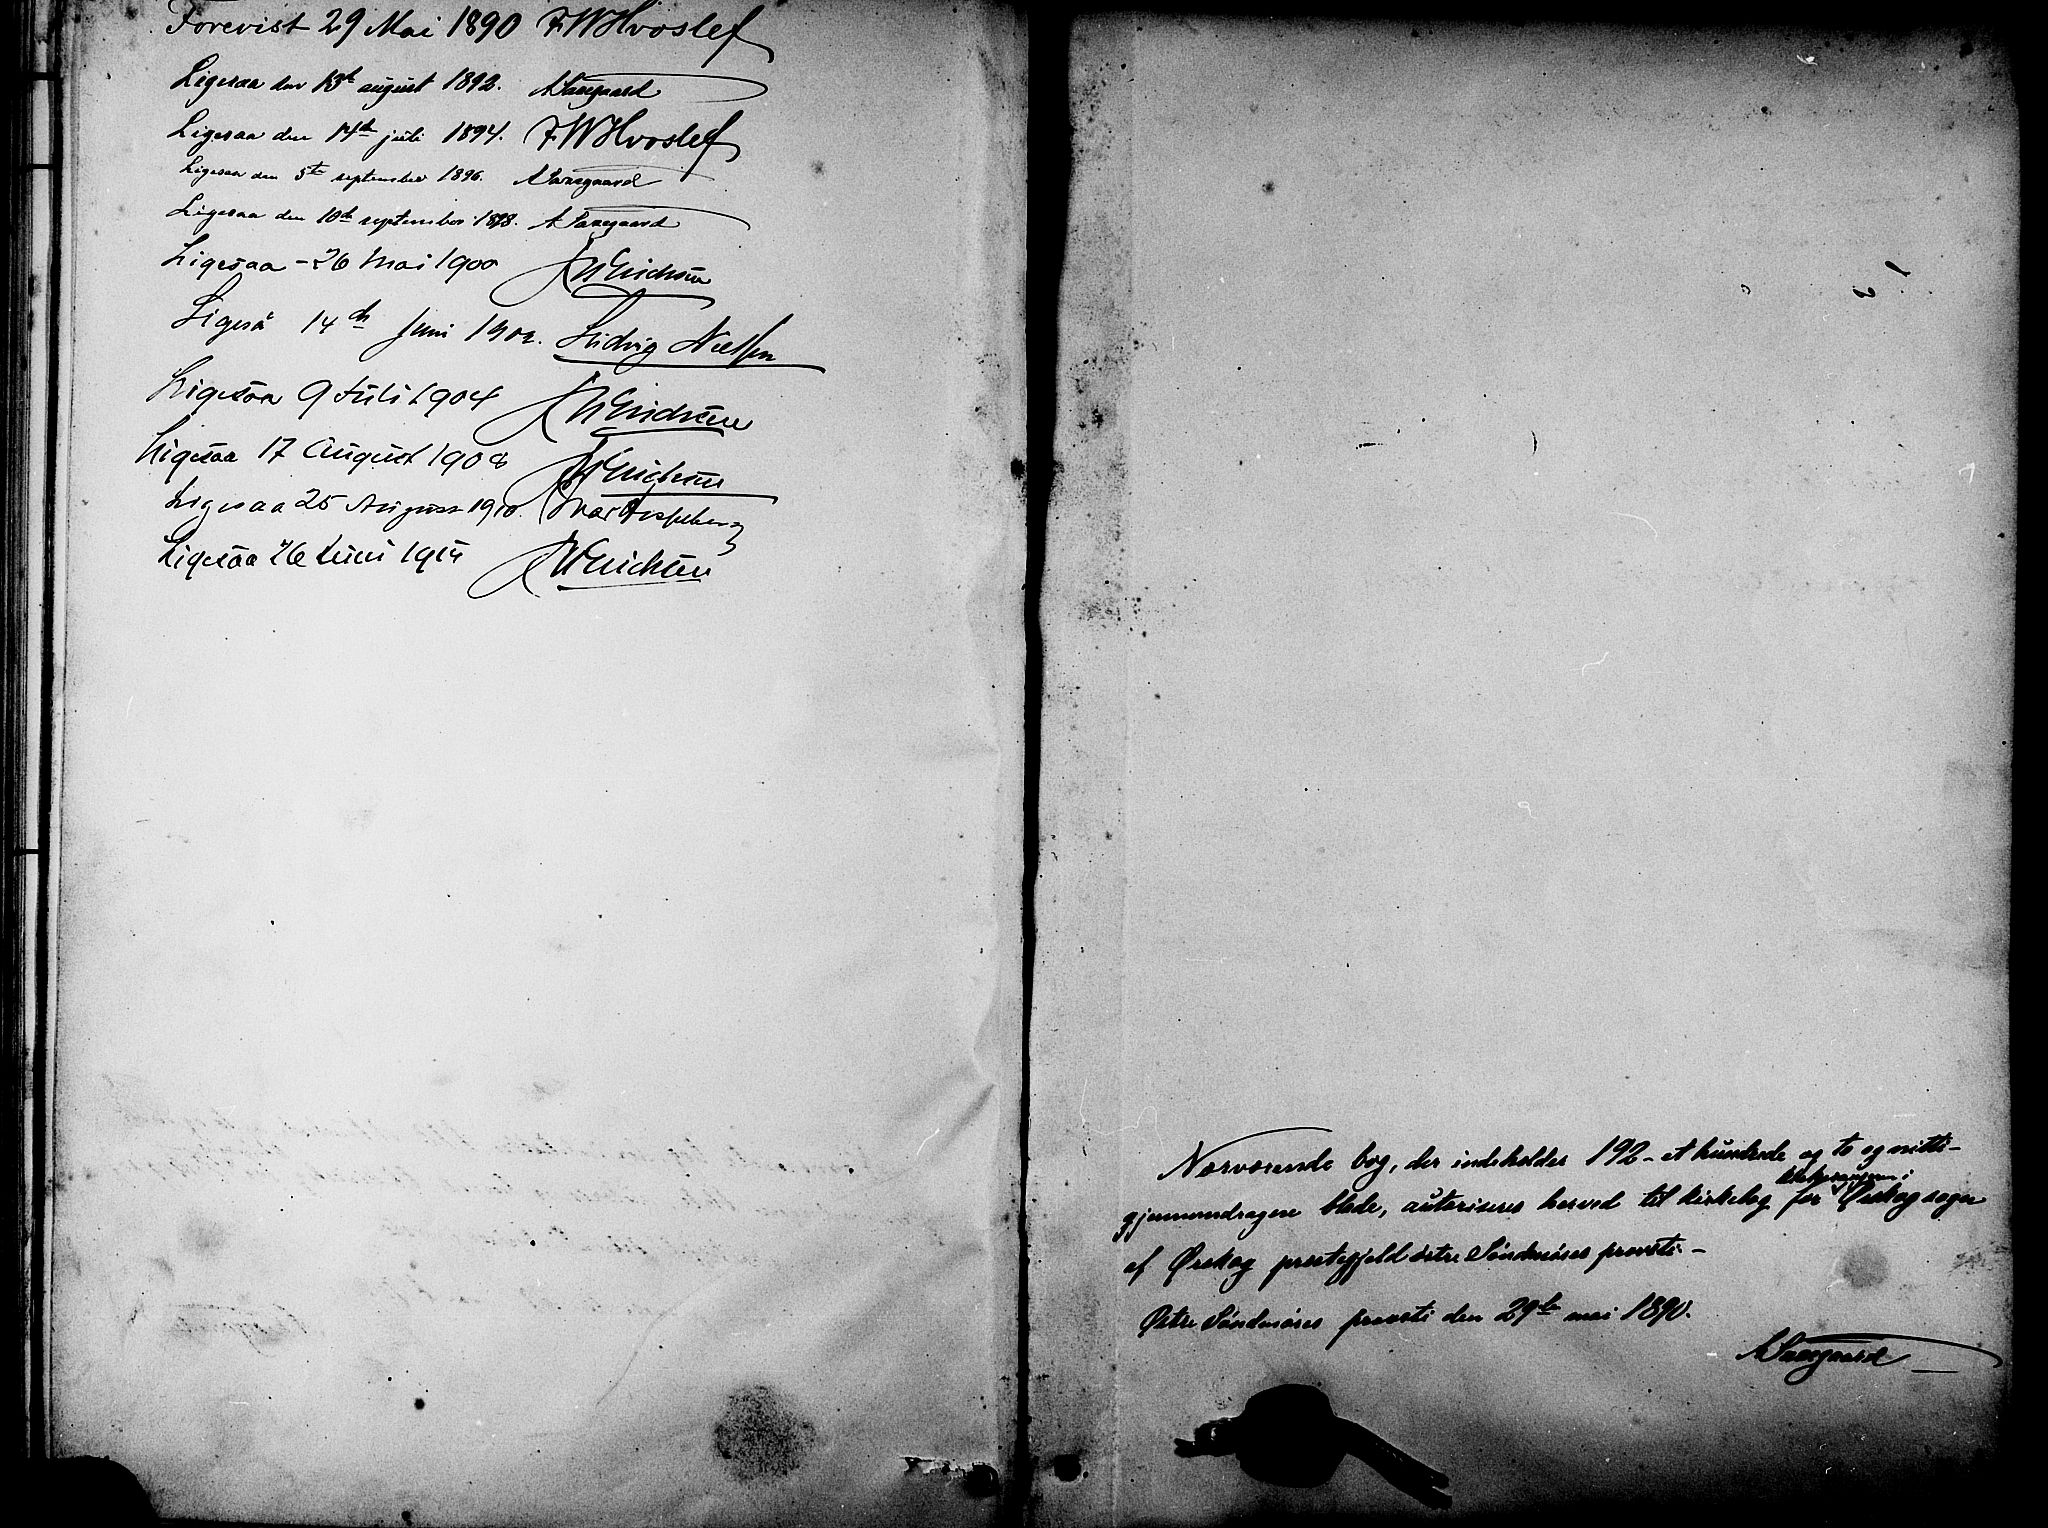 Forevist 29 Mai 1890 FWHvoslef
Ligesaa den 13de august 1892. ASaxegaard
Ligesaa den 14de juli 1894. FWHvoslef
Ligesaa den 5te september 1896. ASaxegaard
Ligesaa den 10de september 1898. ASaxegaard
Ligesaa - 26 Mai 1900 Erichsen
Ligeså 14de Juni 1902. Ludvig
Ligesaa 9 Juli 1904 Erichsen
Ligesaa 17 August 1908 Erichsen
Ligesaa 25 August 1910.
Ligesaa 26 Juni 1914 Erichsen
Nærværende bog, der indeholder 192 - et hundrede og to og nitti -
gjennemdragne blade, autoriseres herved til kirkebog for klokkeren i Ørskog sogn
af Ørskog prestegjeld østre Søndmøres provsti -
Østre Søndmøres provsti den 29de mai 1890.
ASaxegaard